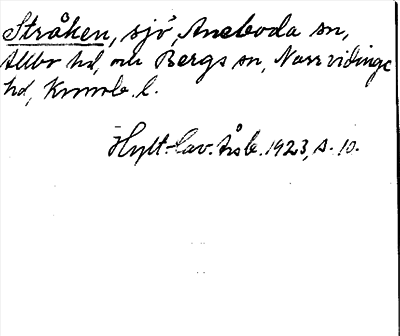 Stråken, sjö, Aneboda sn,
Allbo hd, och Bergs sn, Norrvidinge
hd, Kronob. l.
Hylt-Cav. Årsb. 1923, s. 10.